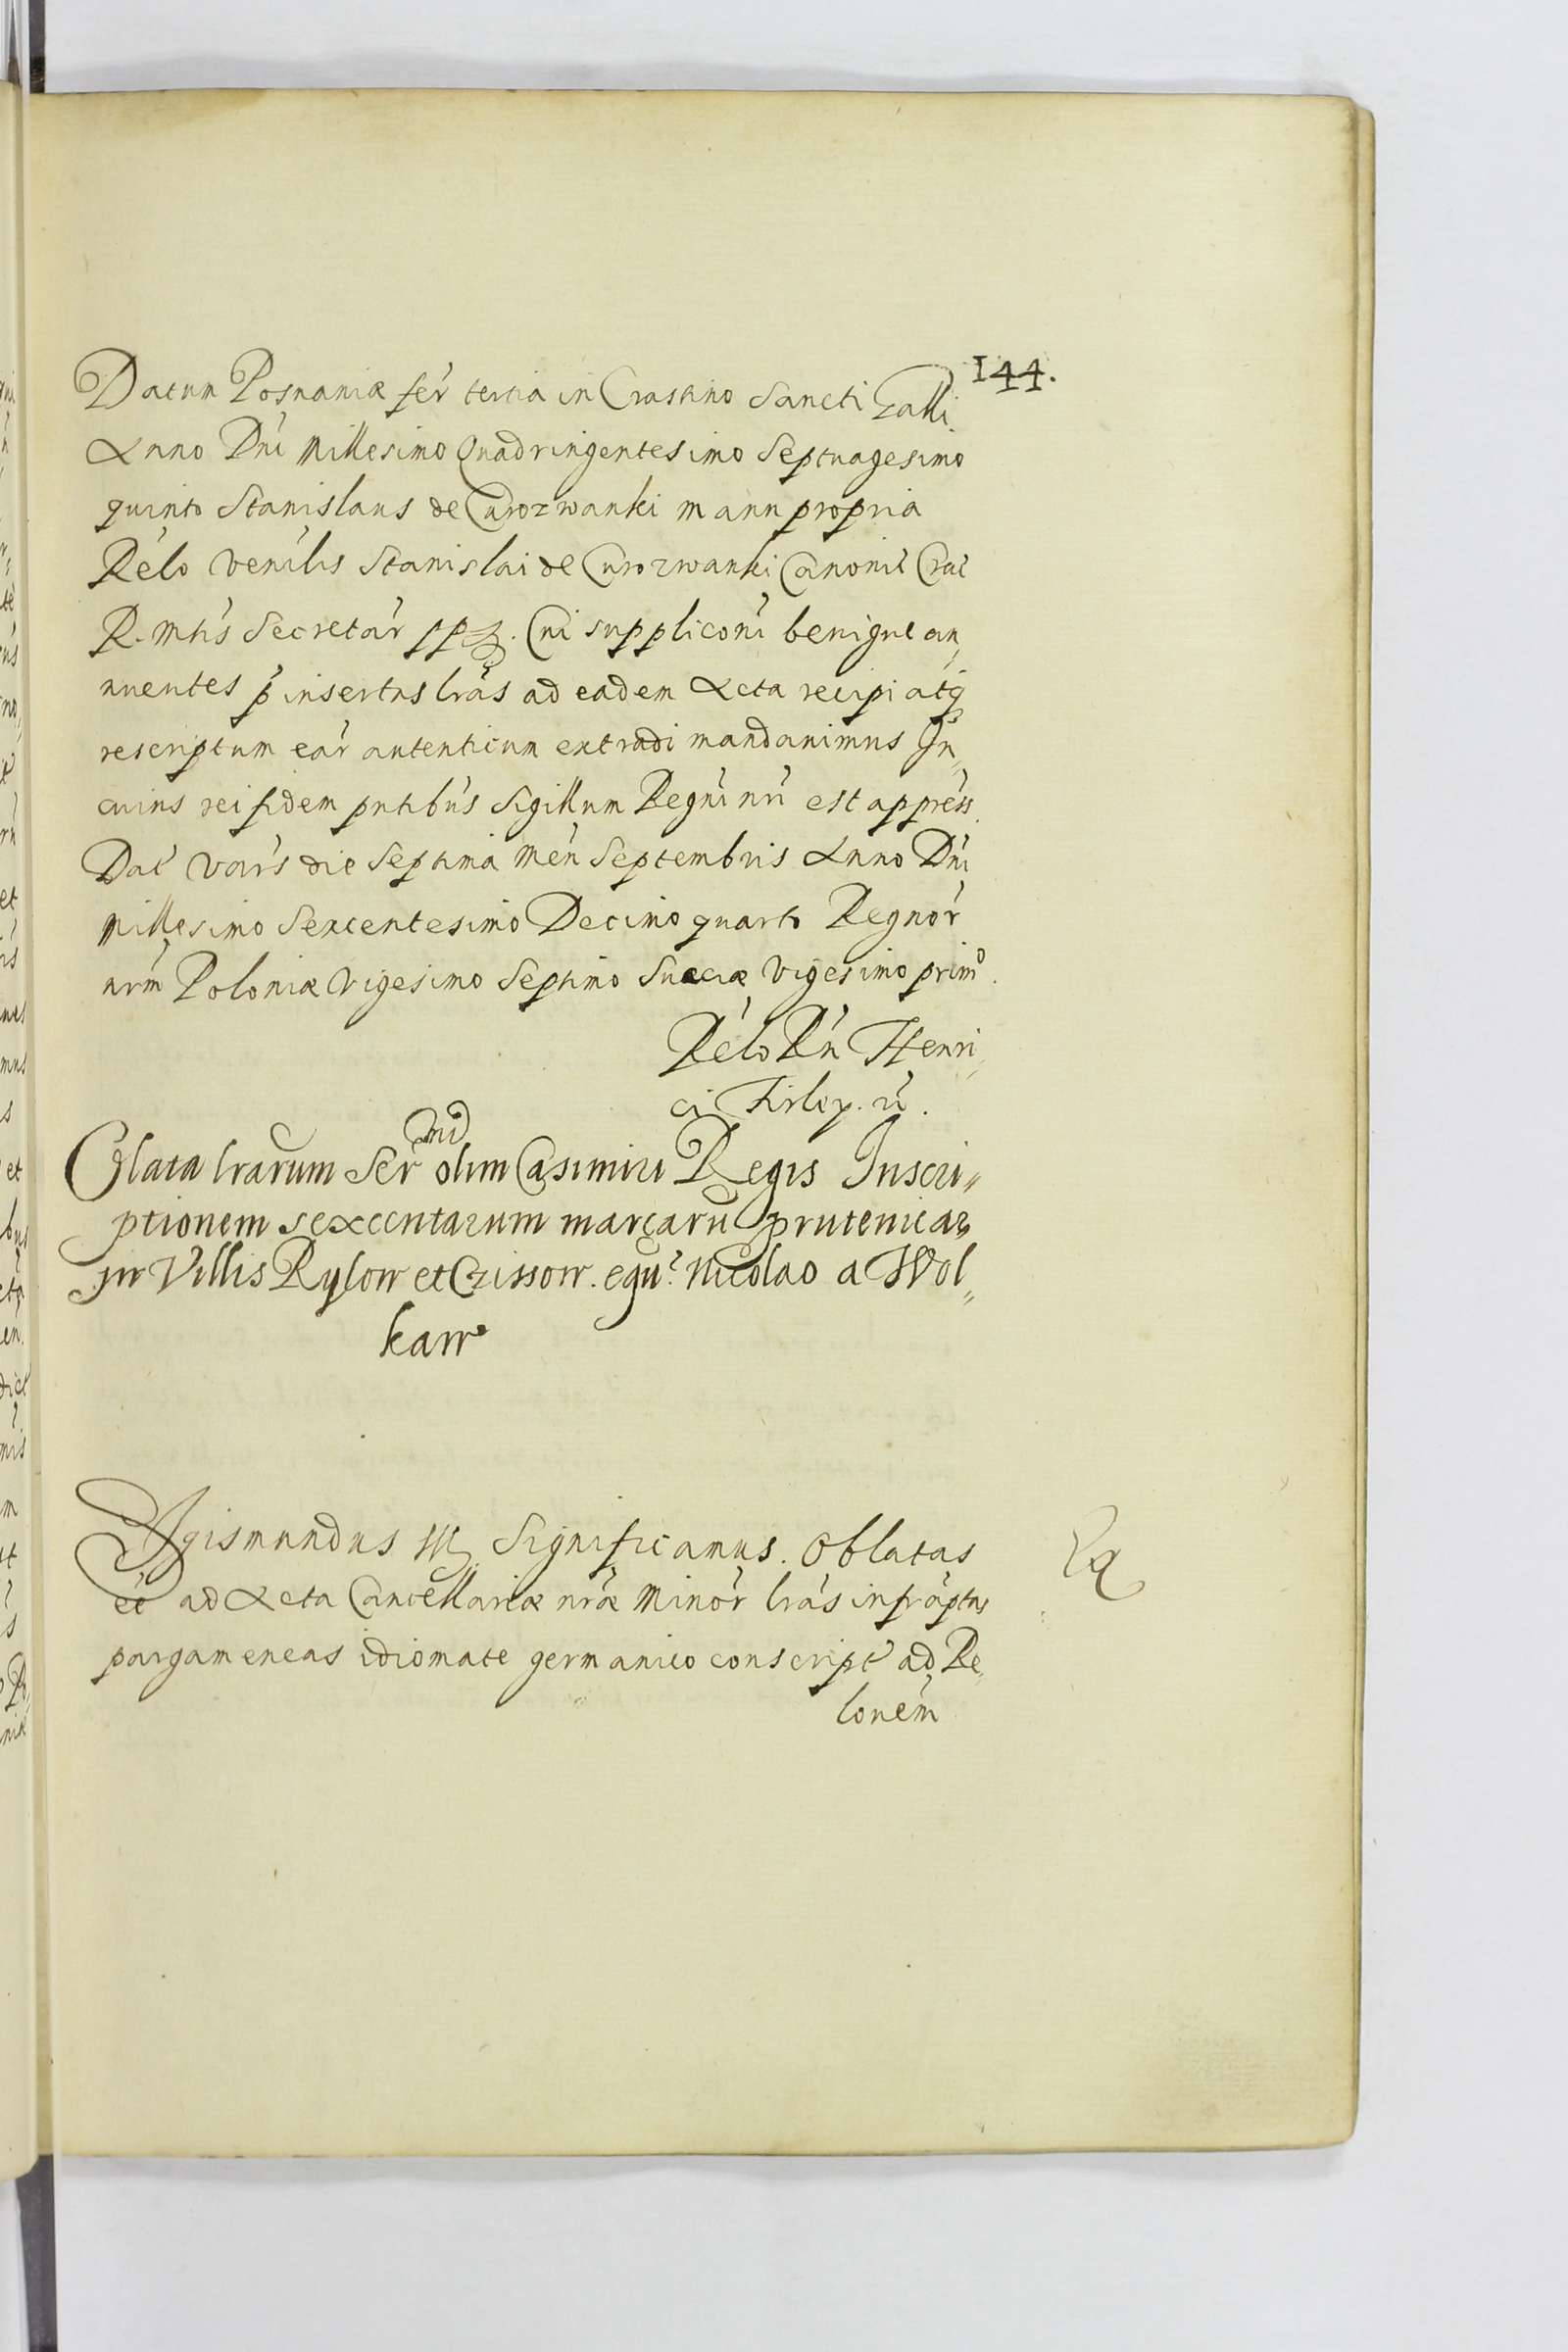 144.
Datum Posnaniæ fer̃ tertia in Crastino Sancti Galli
Anno Dni Millesimo Quadringentesimo Septuagesimo
quinto Stanislaus de Curozwanki manu propria
Relo venilis Stanislai de Curozwanki Canonic Crac
R. Mtis Secretar Cui suppliconi benigne an„
nuentes p insertas lras ad eadem Acta recipi atq
rescriptum ear autenticum extradi mandavimus In„
cuius rei fidem pntibus Sigillum Regni nri est appress.
Dat Vars die Septima Men Septembris Anno Dni
Millesimo Sexcentesimo Decimo quarto Regnor
nrm Poloniæ Vigesimo Septimo Sueciæ Vigesimo primo.
Relo Rn Henri„
ci Firley. R.
Oblata lrarum Ser mi olim Casimiri Regis Inscri„
ptionem sexcentarum marcarũ prutenicar
in Villis Rylow et Czissow. equ. Nicolao a Wol„
kaw
Sigismundus III Significamus. Oblatas
et ad Acta Cancellariæ nræ Minor lras infraptas
pargameneas idiomate germanico conscript ad Re„
lonem